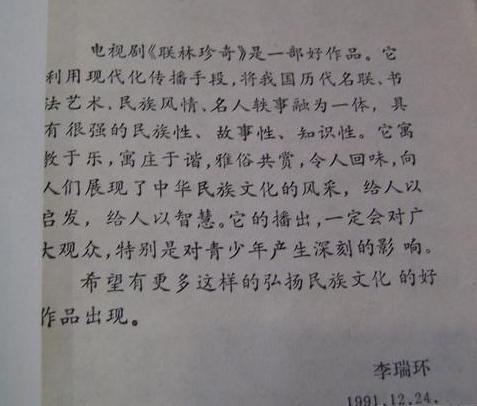 电视剧《联林珍奇》是一部好作品。它
利用现代化传播手段，将我国历代名联、书
法艺术、民族风情、名人轶事融为一体，具
有很强的民族性、故事性、知识性。它寓
教于乐，寓庄于谐，雅俗共赏，令人回味，向
人们展现了中华民族文化的风采，给人以
启发，给人以智慧。它的播出，一定会对广
大观众，特别是对青少年产生深刻的影响。
希望有更多这样的弘扬民族文化的好
作品出现。
李瑞环
1991.12.24.